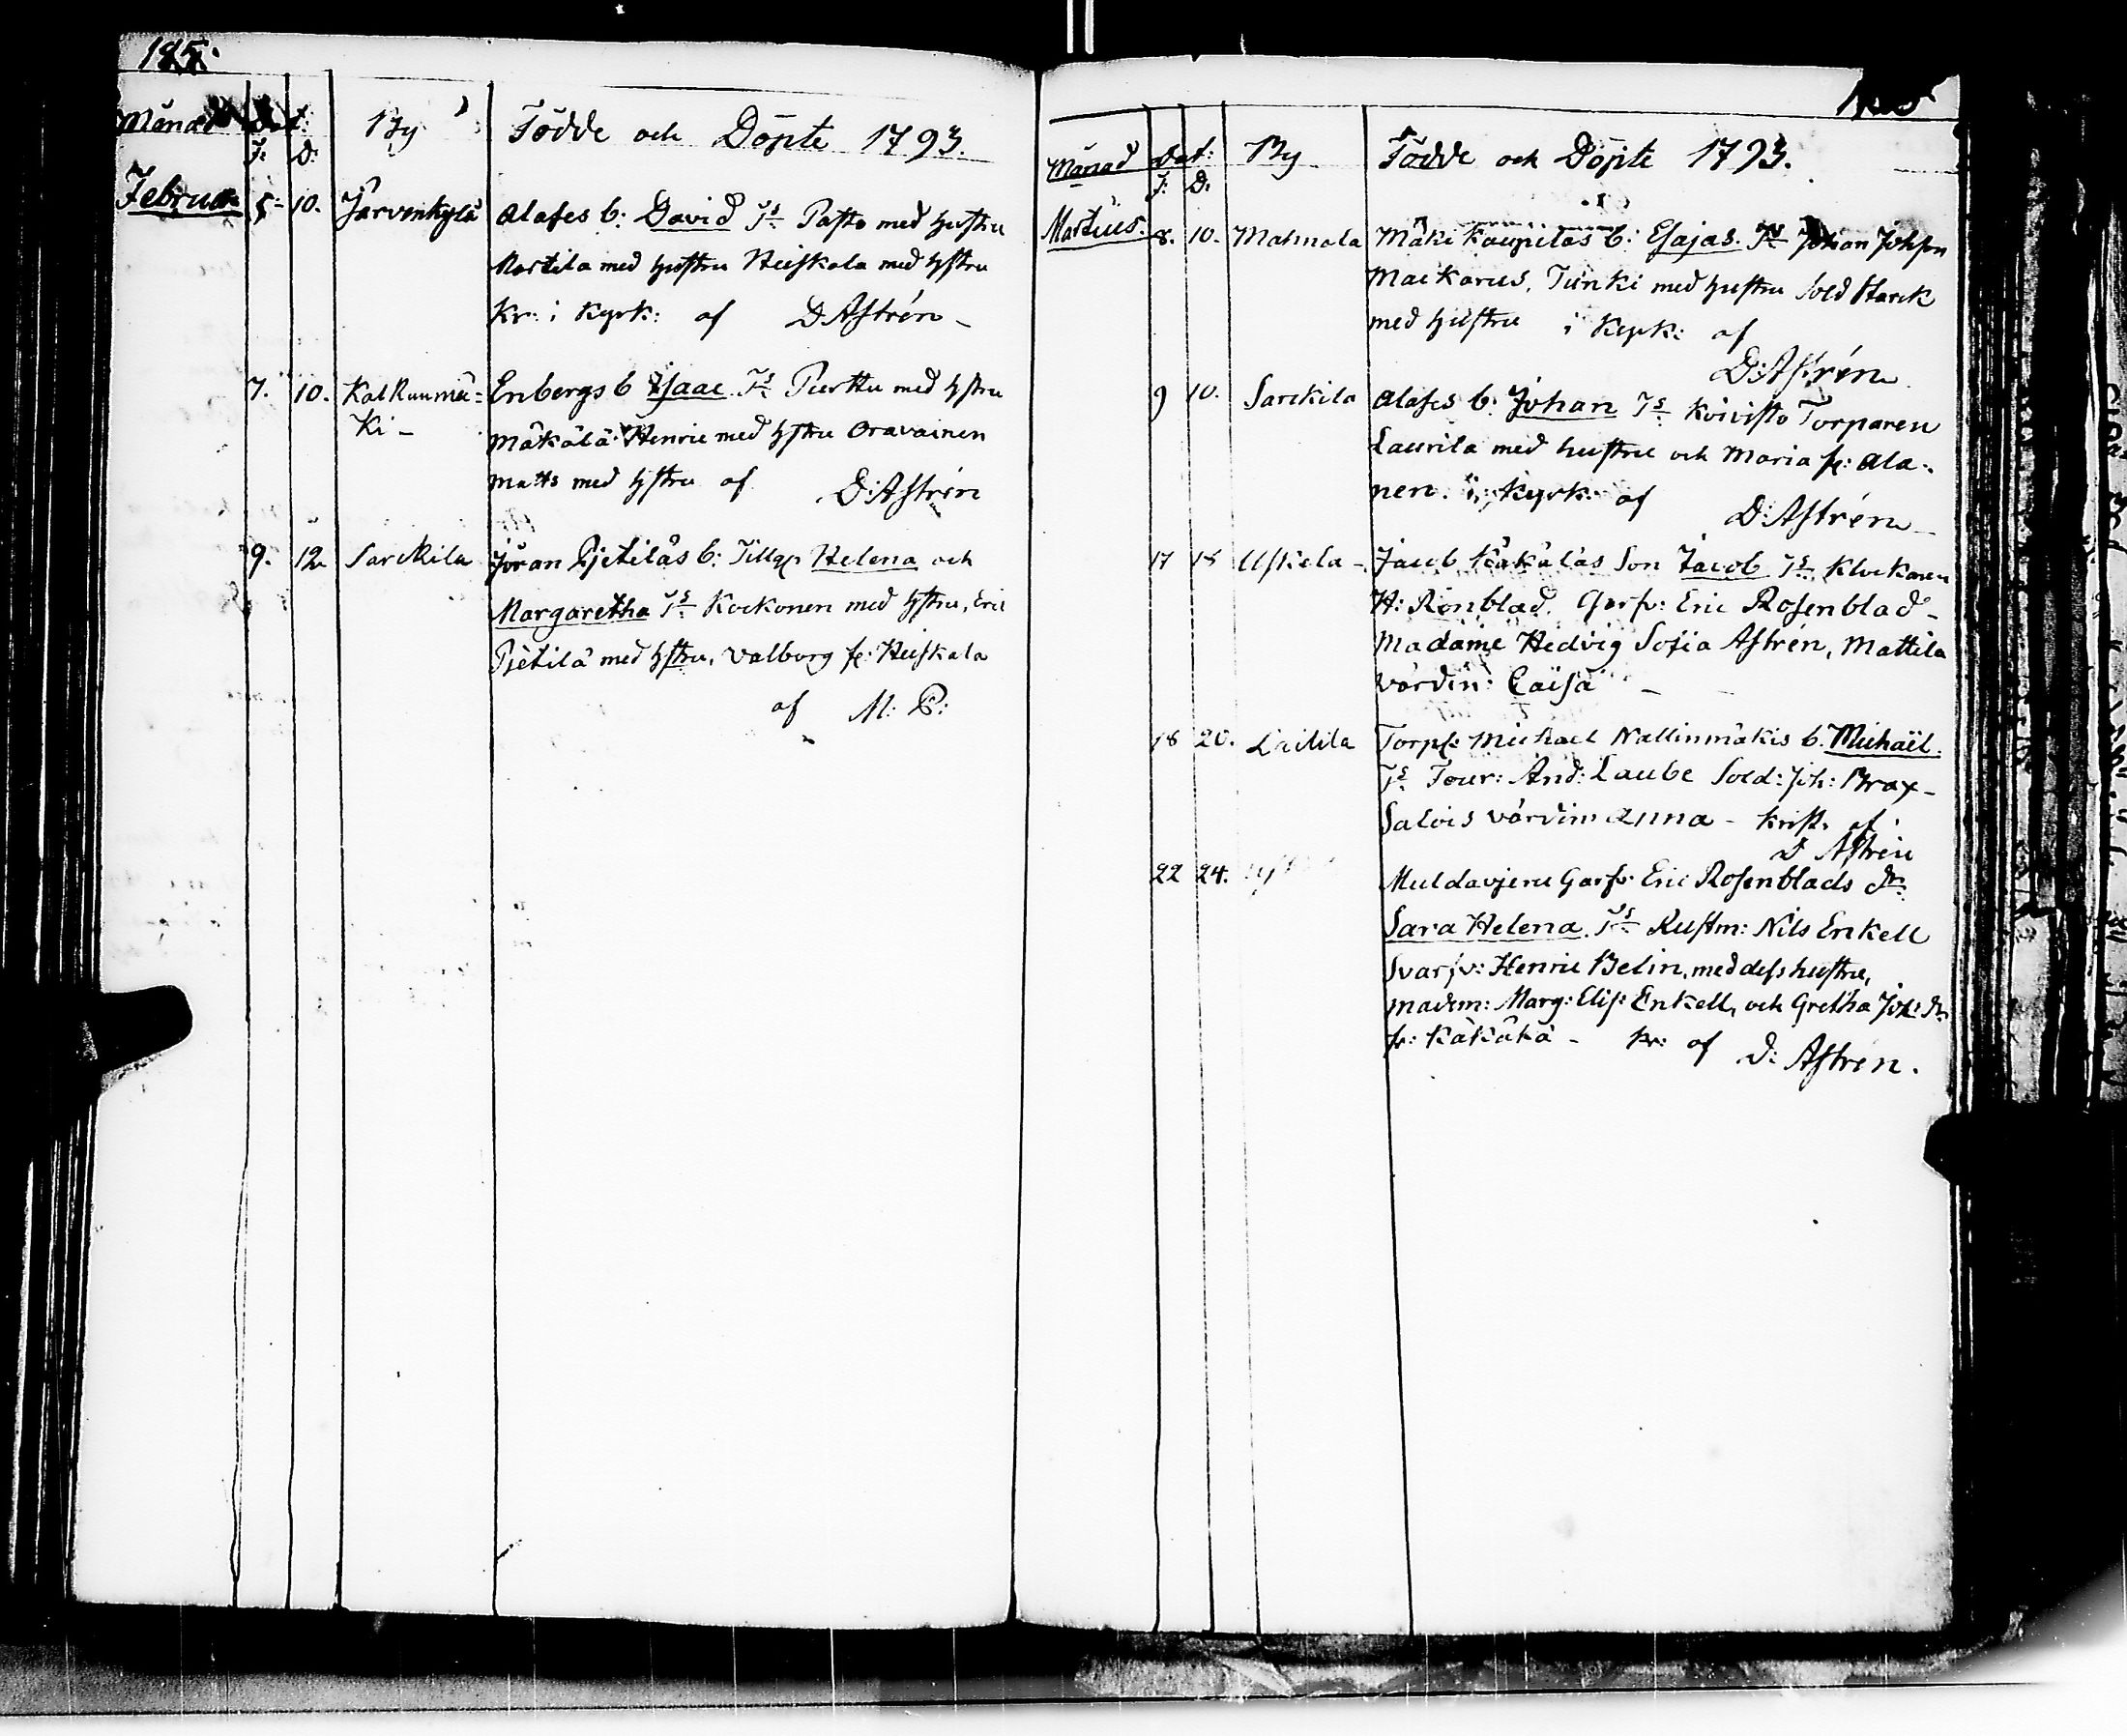 185.
Månad Dat: By Födde och Döpte 1793.
F: D:
Februar 5. 10. Järvenkylä Alafes b: David Fs Pasto med hustru
Martila med hustru Heiskala med hstru
Kr: i Kyrk: af D Astrén
7. 10. Kalkunmä= Enbergs b Isaac Fs Pierttu med hstru
Ki Mäkälä Henric med hstru Oravainen
Matts med hstru af D: Astrén
9. 12 Sarckila Jöran Pjetiläs b: Tillgr Helena och
Margaretha Fs Kockonen med hstru, Eric
Pjetilä med hstru, Valborg fr: Heiskala
af M: P:
Månad Dat: By Födde och Döpte 1793.
F: D:
Martius. 8. 10. Mahnala Mäki Kaupilas b: Esajas. Fs Johan Johsson
Maikarus, Tunki med hustru Sold Starck
med hustru i Kyrk: af
D: Astrén
9 10. Sarckila Alafes b: Johan Fs Koivisto Torparen
Laurila med hustru och Maria fr: Ala=
nen. i Kyrk: af D: Astrén
17 18 Uskela Jacob Käkäläs Son Jacob Fs Klockaren
H: Renblad. Garfv: Eric Rosenblad
Madame Hedvig Sofia Astrén, Mattila
värdin: Caisa
18 20. Laitila Torp: Michael Nallinmäkis b. Michaël.
Fs Four: And: Laube Sold: Joh: Brax
Salois värdin: Anna krist. af
D Astrén
22 24. Muldavjeru Garfv: Eric Rosenblads dr
Sara Helena. Fs Rustm: Nils Enkell
Svarfv: Henric Belin, med dess hustru,
madem: Marg: Elis: Enkell, och Gretha Joh: dr
fr: Käkäkä kr: af D: Astrén.